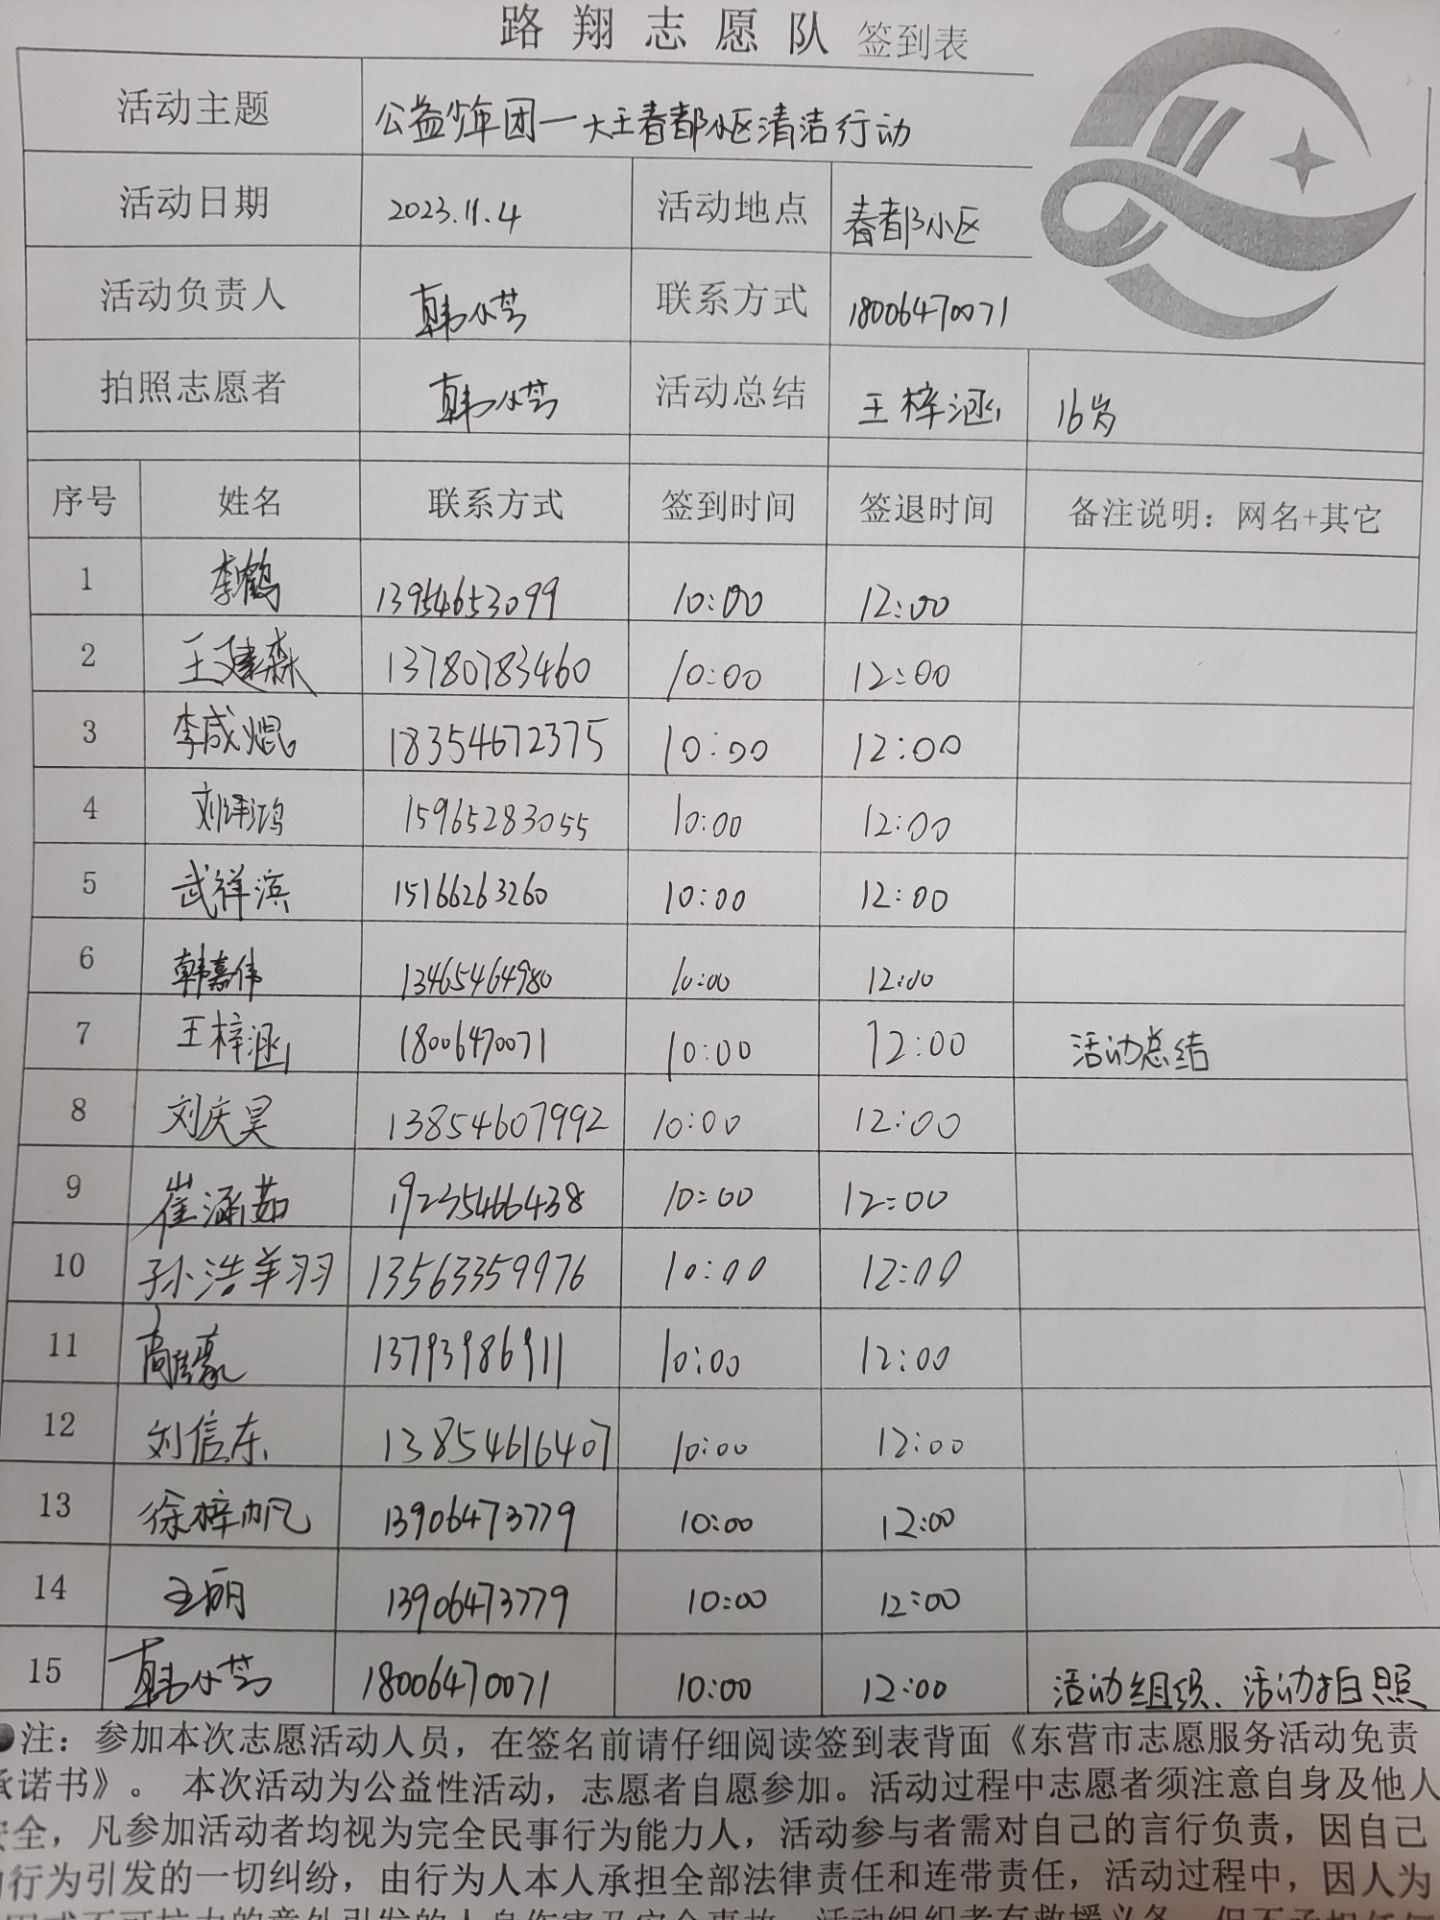 路翔志愿队 签到表
活动主题 公益少年团一大王春都小区清洁行动
活动日期 2023.11.4 活动地点 春都小区
活动负责人 韩小芳 联系方式 18006470071
拍照志愿者 韩小芳 活动总结 王梓涵 16岁
序号 姓名 联系方式 签到时间 签退时间 备注说明：网名+其它
1 李鹤 13954653099 10:00 12:00
2 王建森 13780783460 10:00 12:00
3 李成焜 18354672375 10:00 12:00
4 刘泽鸿 15965283055 10:00 12:00
5 武祥滨 15166263260 10:00 12:00
6 韩嘉伟 13465464980 10:00 12:00
7 王梓涵 18006470071 10:00 12:00 活动总结
8 刘庆昊 13854607992 10:00 12:00
9 崔涵茹 19235466438 10:00 12:00
10 孙浩羊羽 13563359976 10:00 12:00
11 13793986911 10:00 12:00
12 刘信东 13854616407 10:00 12:00
13 徐梓帆 13906473779 10:00 12:00
14 王丽 13906473779 10:00 12:00
15 韩小芳 18006470071 10:00 12:00 活动组织、活动拍照
●注：参加本次志愿活动人员，在签名前请仔细阅读签到表背面《东营市志愿服务活动免责
承诺书》。 本次活动为公益性活动，志愿者自愿参加。活动过程中志愿者须注意自身及他人
安全，凡参加活动者均视为完全民事行为能力人，活动参与者需对自己的言行负责，因自己
的行为引发的一切纠纷，由行为人本人承担全部法律责任和连带责任，活动过程中，因人为